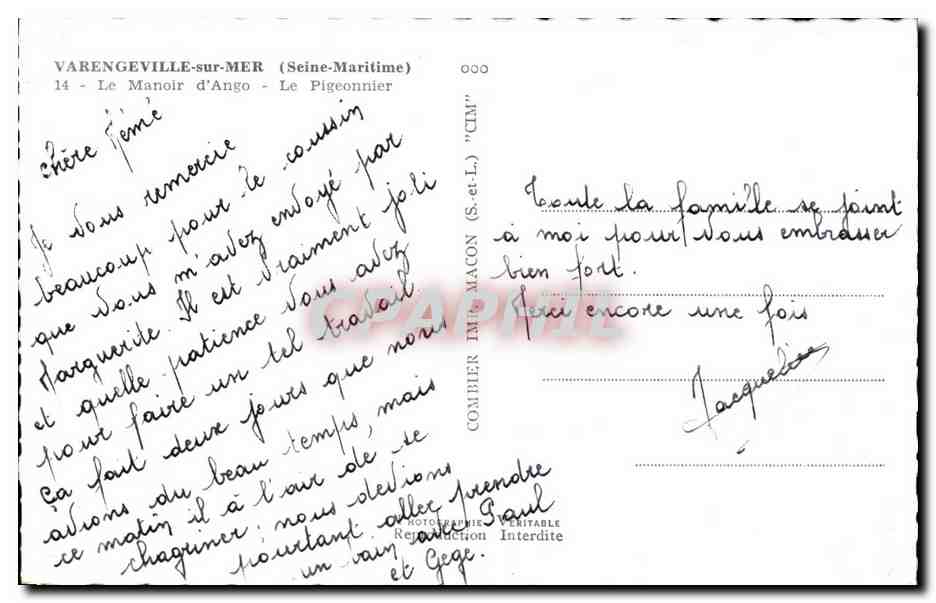 VARENGEVILLE-sur-MER (Seine-Maritime)
14 - Le Manoir d'Ango - Le Pigeonnier
Chère Mémé
Je vous remercie
beaucoup pour le coussin
que vous m'avez envoyé par
Marguerite. Il est vraiment joli
et quelle patience vous avez
pour faire un tel travail
Ça fait deux jours que nous
avions du beau temps, mais
ce matin il à l'air de se
chagriner: nous devions
pourtant aller prendre
un bain avec Paul
et Gege.
ooo
COMBIER IMP. MACON (S.-et-L.) "CIM"
PHOTOGRAPHIE VERITABLE
Reproduction Interdite
Toute la famille se joint
à moi pour vous embrasser
bien fort.
Merci encore une fois
Jacqueline
CPAPHIL